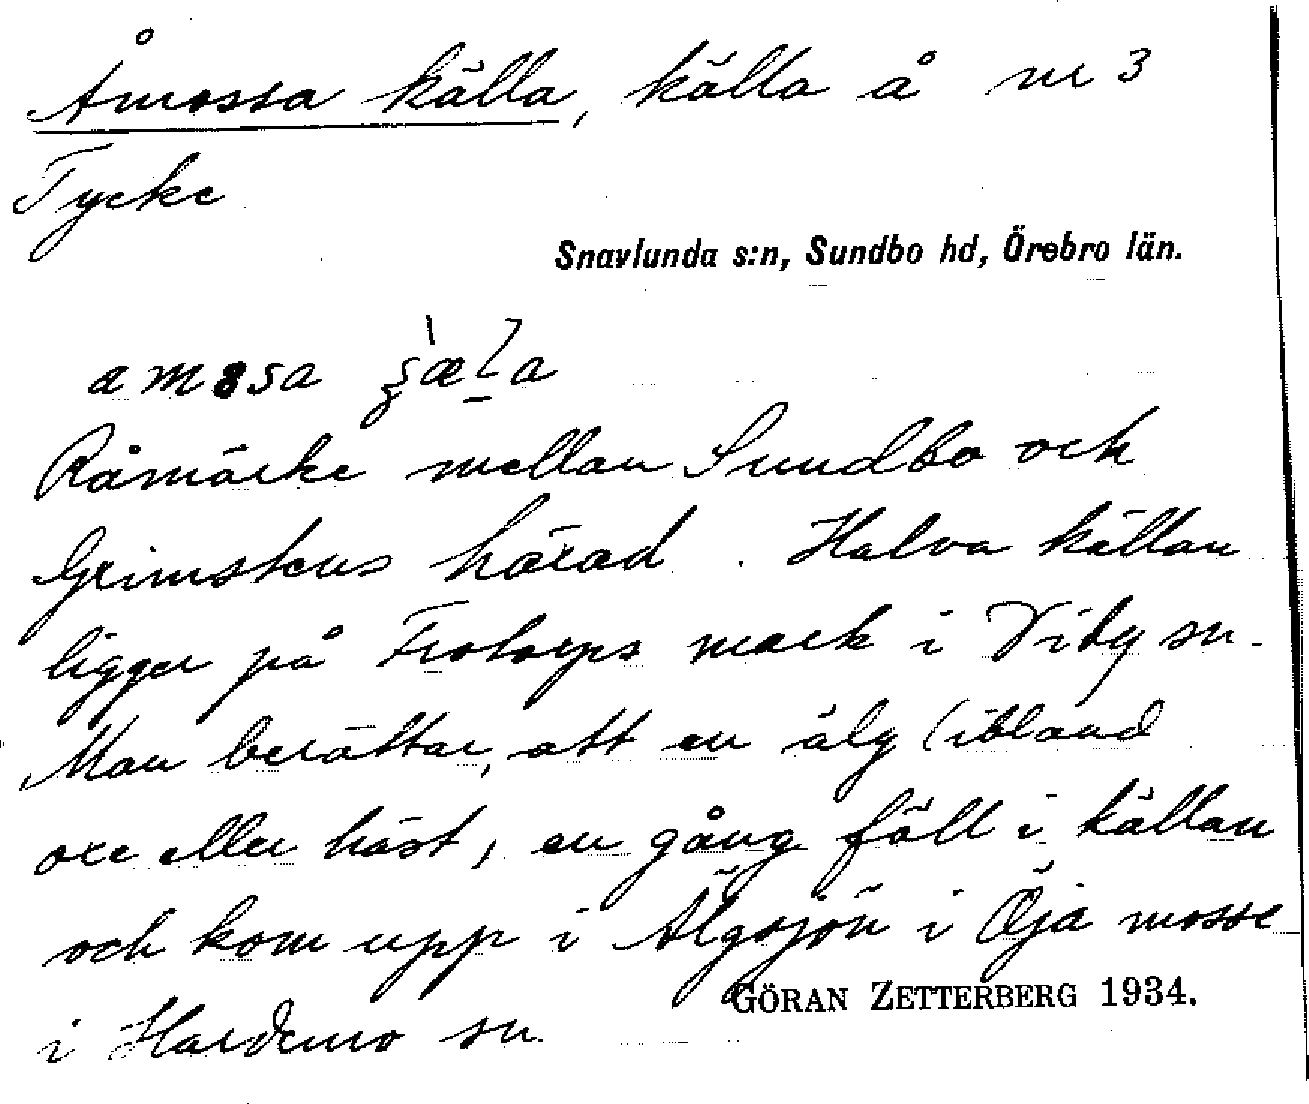 Åmossa källa, källa å nr 3
Tycke
Snavlunda s:n, Sundbo hd, Örebro län.
Råmärke mellan Sundbo och
Grimstens härad. Halva källan
ligger på Frotorps mark i Viby sn.
Man berättar, att en älg (ibland
oxe eller häst, en gång föll i källan
och kom upp i Älgsjön i Öja mosse
GÖRAN ZETTERBERG 1934.
i Hardemo sn